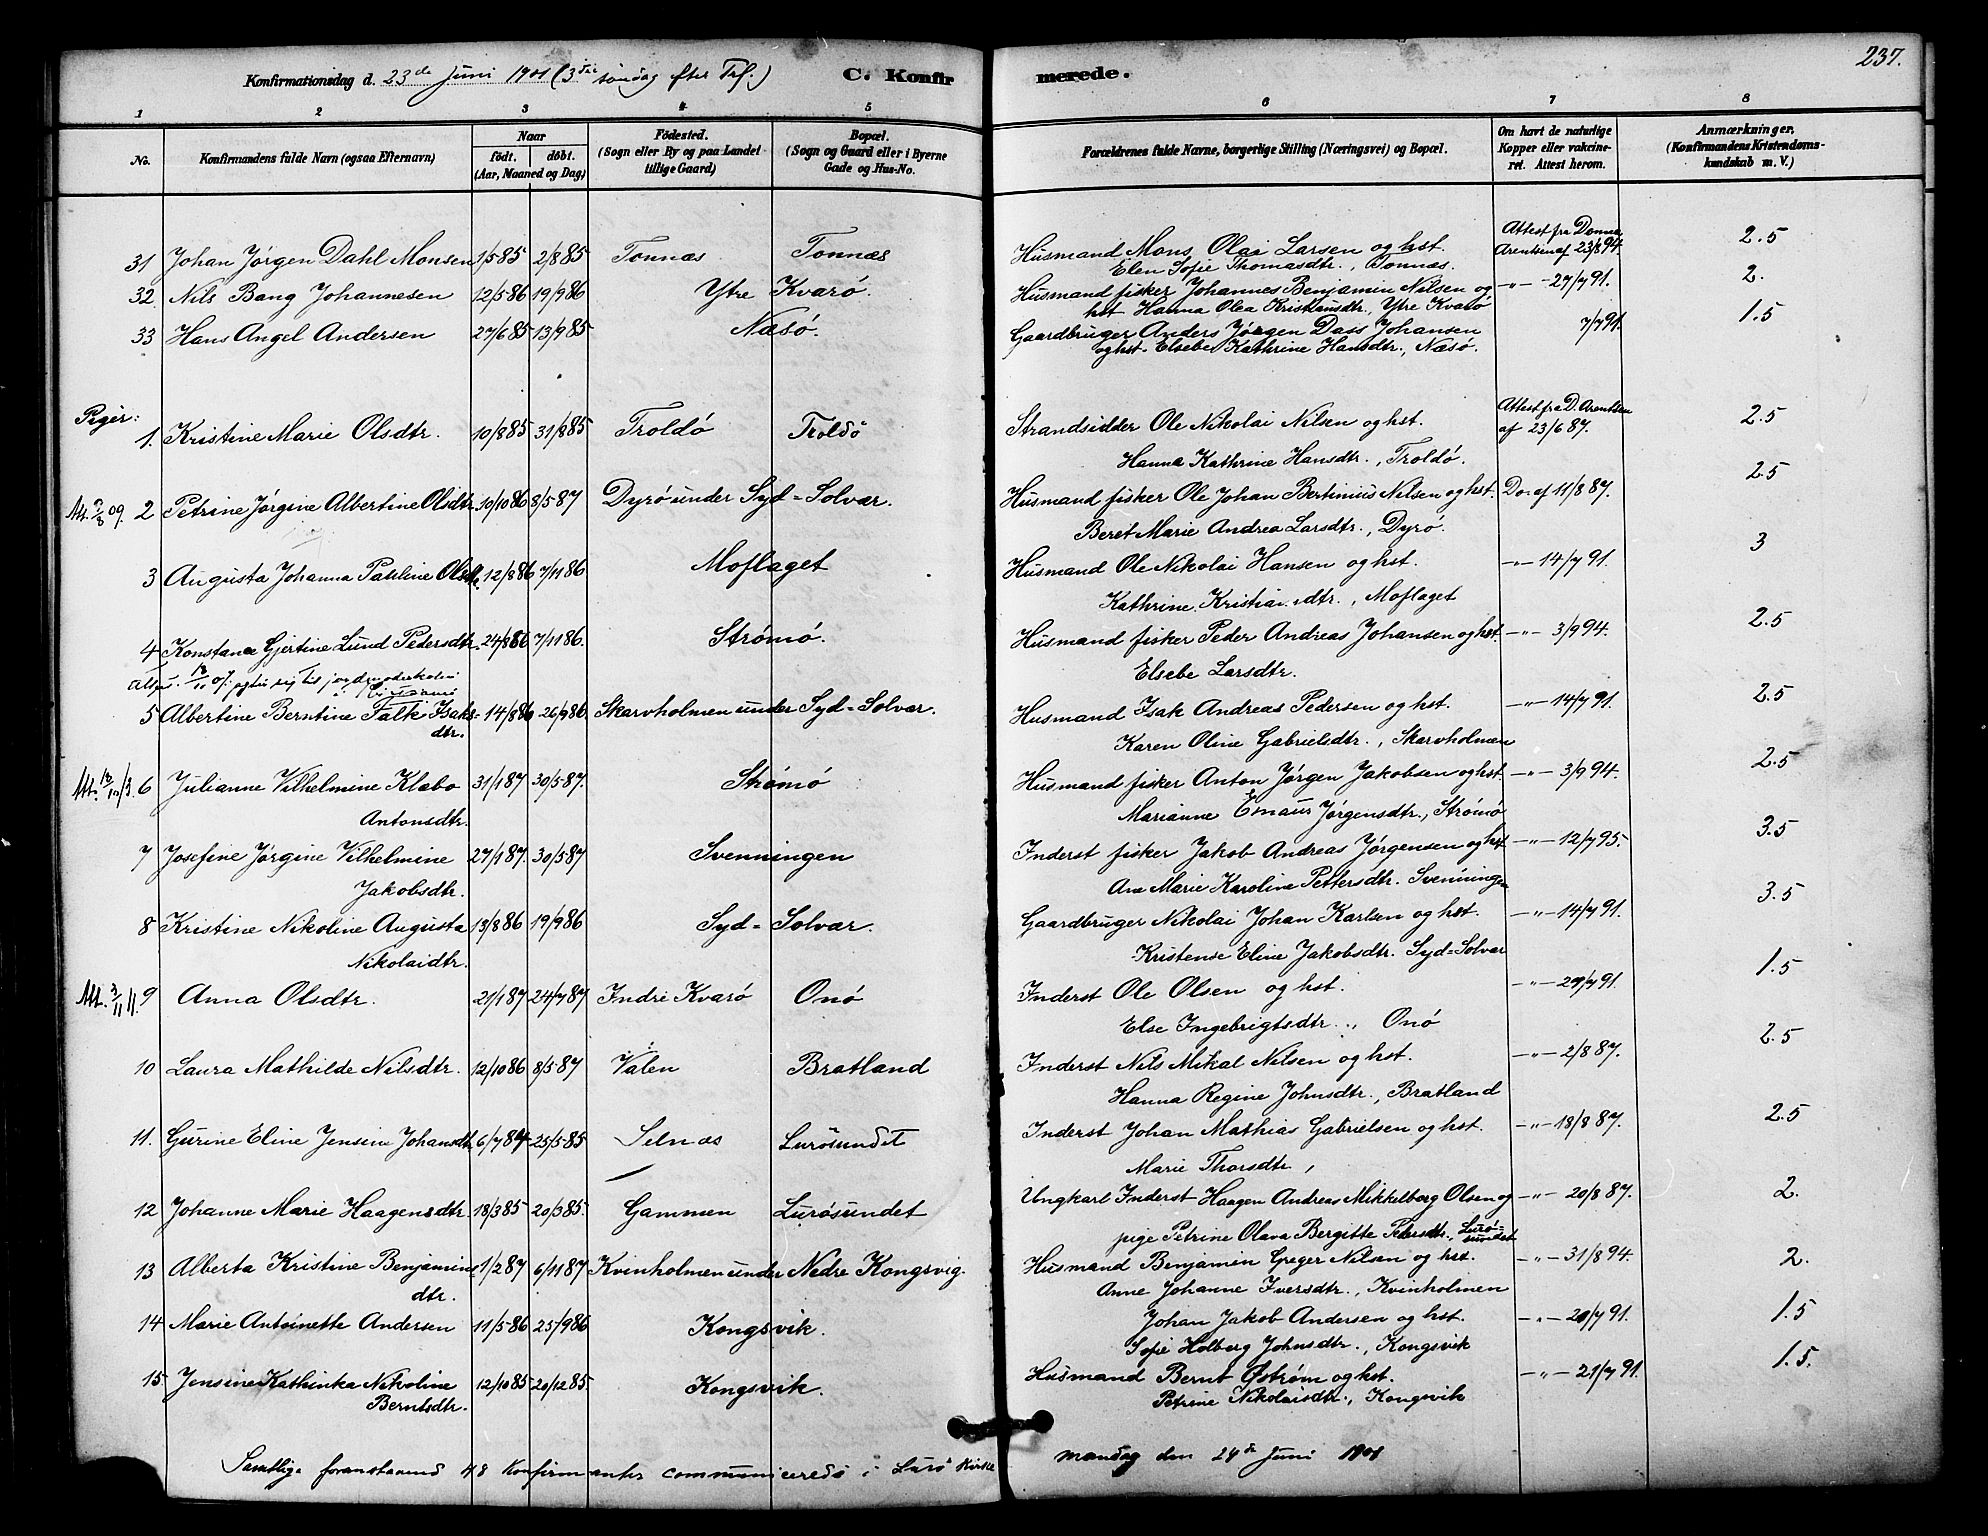 237.
Konfirmationsdag d. 23de Juni 1901 (3die søndag efter Trf.) C. Konfirmerede.
1 2 3 4 5 6 7 8
No. Konfirmandens fulde Navn (ogsaa Efternavn) Naar født. døbt. (Aar, Maaned og Dag) Födested. (Sogn eller By og paa Landet tillige Gaard) Bopæl. (Sogn og Gaard eller i Byerne Gade og Hus-No. Forældrenes fulde Navne, borgerlige Stilling (Næringsvei) og Bopæl. Om havt de naturlige Kopper eller vakcineret. Attest herom. Anmærkninger, (Konfirmandens Kristendomskundskab m. V.)
31 Johan Jørgen Dahl Monsen 1/5 85 2/8 85 Tonnæs Tonnæs Husmand Mons Olai Larsen og hst. Attest fra Donna Arentsen af 23/8 94. 2.5
Elen Sofie Thomasdtr., Tonnæs.
32 Nils Bang Johannesen 12/5 86 19/9 86 Ytre Kvarø. Husmand fisker Johannes Benjamin Nilsen og -"- 27/7 91. 2.
hst Hanna Olea Kristensdtr., Ytre Kvarø
33 Hans Angel Andersen 27/6 85 13/9 85 Næsø. Gaardbruger Anders Jørgen Dass Johansen 7/7 91. 1.5
og hst. Elsebe Kathrine Hansdtr., Næsø.
Piger:
1. Kristine Marie Olsdtr. 10/8 85 31/8 85 Troldø Troldø Strandsidder Ole Nikolai Nilsen og hst. Attest fra D. Arentsen af 23/6 87. 2.5
Hanna Kathrine Hansdtr., Troldø.
Att. 2/8 09. 2 Petrine Jørgine Albertine Olsdtr. 10/10 86 8/5 87 Dyrø under Syd=Solvær. Husmand fisker Ole Johan Bertinius Nilsen og hst. Do. af 11/8 87. 2.5
Beret Marie Andrea Larsdtr., Dyrø.
3 Augusta Johanna Pauline Olsdtr. 12/8 86 7/11 86 Moflaget Husmand Ole Nikolai Hansen og hst. -"- 14/7 91. 3
Kathrine dtr., Moflaget
4 Konstance Gjertine Lund Pedersdtr. 24/8 86 7/11 86. Strømø. Husmand fisker Peder Andreas Johansen og hst. -"- 3/9 94. 2.5
Elsebe Larsdtr.
5 Albertine Berntine Falk Isaks- 14/8 86 26/9 86. Skarvholmen under Syd=Solvær. Husmand Isak Andreas Pedersen og hst. -"- 14/7 91. 2.5
dtr. Karen Oline Gabrielsdtr., Skarvholmen
Att. 6 Julianne Vilhelmine Klæbo 31/1 87 30/5 87. Strømø Husmand fisker Anton Jørgen Jakobsen og hst. -"- 3/9 94. 2.5
Antonsdtr. Marianne Emaus Jørgensdtr., Strømø
7 Josefine Jørgine Vilhelmine 27/1 87. 30/5 87 Svenningen Inderst fisker Jakob Andreas Jørgensen og hst -"- 12/7 95. 3.5
Jakobsdtr. Ane Marie Karoline Pettersdtr. Svenningen
8 Kristine Nikoline Augusta 13/8 86 19/9 86 Syd=Solvær. Gaardbruger Nikolai Johan Karlsen og hst. -"- 14/7 91. 3.5
Nikolaidtr. Kristense Eline Jakobsdtr. Syd=Solvær
Att. 3/11 11. 9 Anna Olsdtr. 21/1 87 24/7 87 Indre Kvarø Onø Inderst Ole Olsen og hst. -"- 29/7 91. 1.5
Else Ingebrigtsdtr., Onø
10 Laura Mathilde Nilsdtr. 12/10 86 8/5 87 Valen Bratland Inderst Nils Mikal Nilsen og hst. -"- 2/8 87. 2.5
Hanna Regine Johnsdtr., Bratland
11. Gurine Eline Jensine Johansdtr. 6/7 84 25/5 85 Selnæs Lurøsundet Inderst Johan Mathias Gabrielsen og hst. -"- 18/8 87. 2.5
Marie Thorsdtr,
12 Johanne Marie Haagensdtr. 18/3 85 20/3 85. Gammen Lurøsundet Ungkarl Inderst Haagen Andreas Mikkelborg Olsen og -"- 20/8 87. 2.
pige Petrine Olava Bergitte Petersdtr., Lurøsundet
13 Alberta Kristine Benjamins 1/2 87 6/11 87 Kvinholmen under Nedre Kongsvig. Husmand Benjamin Greger Nilsen og hst. -"- 31/8 94. 2.
dtr. Anne Johanne Iversdtr., Kvinholmen
14 Marie Antoinette Andersen 11/5 86 25/9 86 Kongsvik. Johan Jakob Andersen og hst. -"- 20/7 91. 1.5
Sofie Holberg Johnsdtr., Kongsvik
15 Jensine Kathinka Nikoline 12/10 85 20/12 85. Kongsvik. Husmand Bernt Østrøm og hst. -"- 21/7 91. 1.5.
Berntsdtr. Petrine Nikolaisdtr., Kongsvik
Samtlige foranstaaend 48 Konfirmanter communicerede i Lurø Kirke mandag den 24de Juni 1901